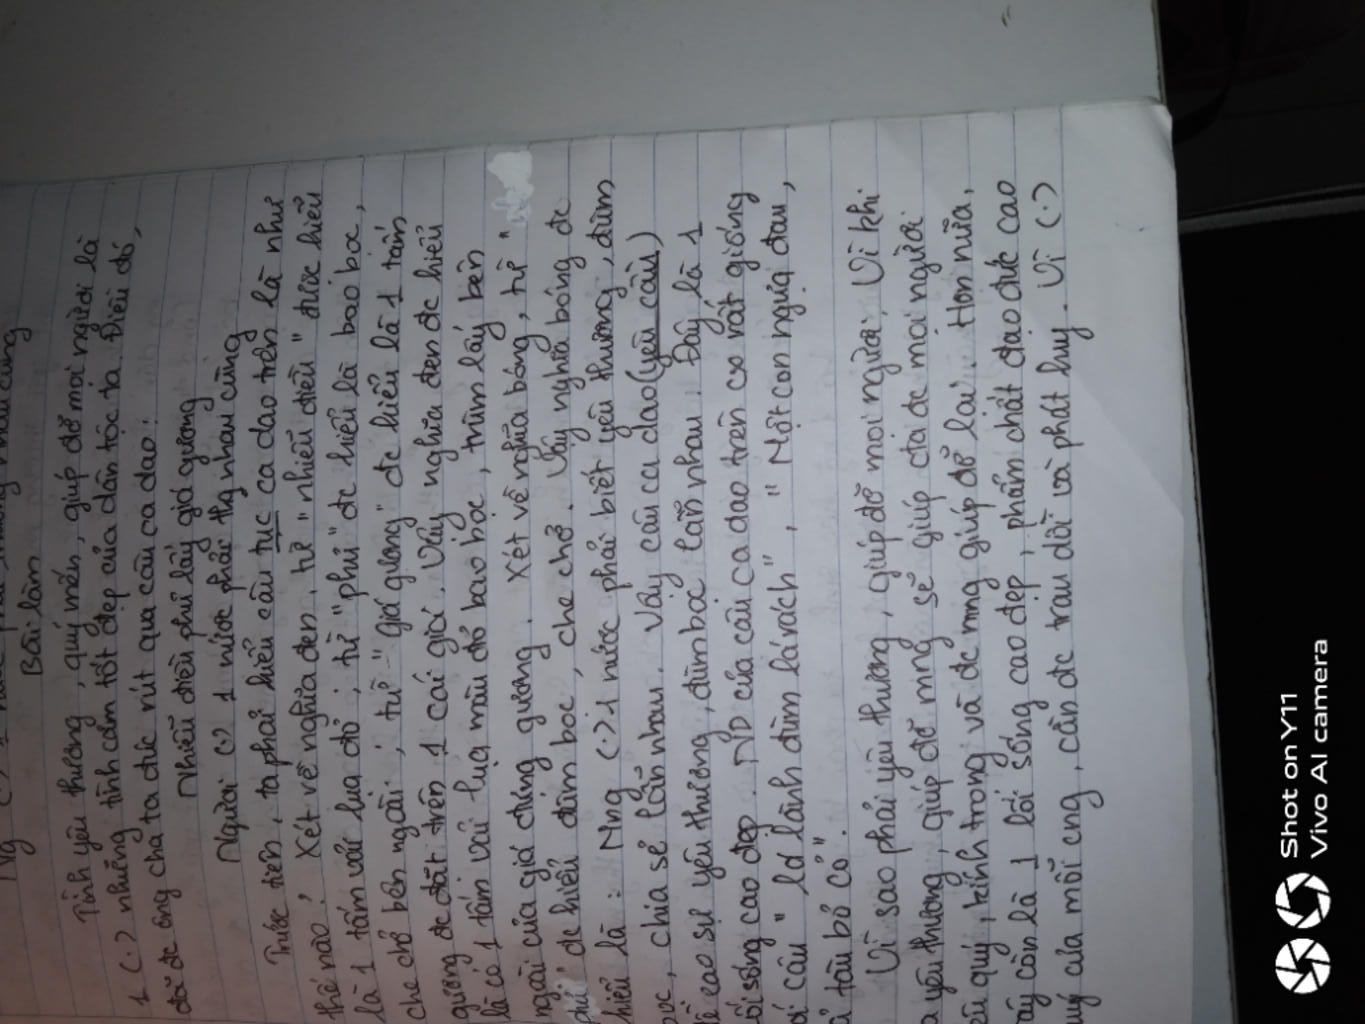 Bài làm
Tình yêu thương, quý mến, giúp đỡ mọi người là
1 (.) những tình cảm tốt đẹp của dân tộc ta. Điều đó,
đã đc ông cha ta đúc rút qua câu ca dao:
Nhiễu điều phủ lấy giá gương
Người (.) 1 nước phải thg nhau cùng
Trước tiên, ta phải hiểu câu tục ca dao trên là như
thế nào? Xét về nghĩa đen, từ "nhiễu điều" được hiểu
là 1 tấm vải lụa đỏ; từ "phủ" đc hiểu là bao bọc,
che chở bên ngoài; từ "giá gương" đc hiểu là 1 tấm
gương đc đặt trên 1 cái giá. Vậy nghĩa đen đc hiểu
là có 1 tấm vải lụa màu đỏ bao bọc, trùm lấy bên
ngoài của giá đựng gương. Xét về nghĩa bóng, từ "
phủ" đc hiểu đùm bọc, che chở. Vậy nghĩa bóng đc
hiểu là: Nng (.) 1 nước phải biết yêu thương, đùm
bọc, chia sẻ lẫn nhau. Vậy câu ca dao (yêu cầu)
đề cao sự yêu thương, đùm bọc lẫn nhau. Đây là 1
lối sống cao đẹp. ND của câu ca dao trên có rất giống
với câu "Lá lành đùm lá rách", "Một con ngựa đau,
cả tàu bỏ cỏ".
Vì sao phải yêu thương, giúp đỡ mọi người? Vì khi
ta yêu thương, giúp đỡ mng sẽ giúp cta đc mọi người
yêu quý, kính trọng và đc mng giúp đỡ lại. Hơn nữa,
đây còn là 1 lối sống cao đẹp, phẩm chất đạo đức cao
quý của mỗi cng, cần đc trau dồi và phát huy. Vì (.)
Shot on Y11
Vivo AI camera